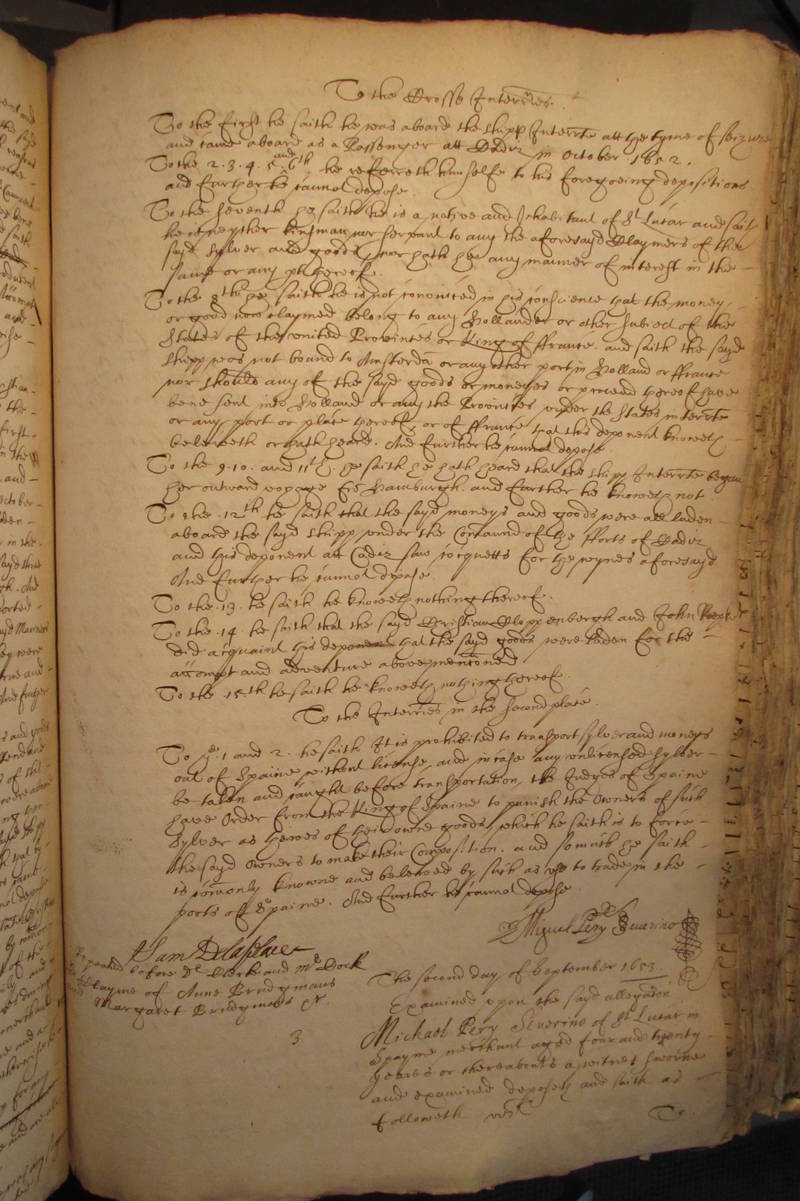 To the Crosse Interries.
To the first he saith he was aboard the shipp Interrte att the tyme of seizure
and came aboard as a Passenger att Cadiz in October 1652.
To the 2. 3. 4. 5 and 6th he referreth himselfe to his foregoeing depositions
and further he cannot depose
To the seventh he saith he is a native and Inhabitant of St Lucar and saith
he is neyther kinsman nor servant to any the aforesayd Claymers of the
sayd sylver and goods, nor hath he any manner of interest in the
same or any pt thereof.
To the 8th he saith he is not convinced in his conscience that the money
or good now claymed belong to any Hollander or other subiect of the
States of the united Provinces or King of ffrance. and saith the sayd
shipp was not bound to Amsterdam or any other port in Holland or ffrance
nor should any of the sayd goods or moneyes or proceed thereof have
bene sent into Holland or any the Provinces under the States interrte
or any port or place thereof, or of ffrance that this deponent knoweth
beleeveth or hath heard. And further he cannot depose
To the 9. 10. and 11th he saith he hath heard that the shipp Interrte began
her outward voyage from Hamburgh. and further he knoweth not
To the 12th he saith that the sayd moneys and goods were all laden
aboard the sayd shipp under the Command of the fforts of Cadiz
and this deponent att Cadiz saw coquetts for the wynes aforesayd
And further he cannot depose.
To the 13. he saith he knoweth nothing thereof.
To the 14 he saith that the sayd Christian Cloppenbergh and John
did acquaint this deponent that the sayd goods were laden for the
accompt and adventure abovementioned
To the 15th he saith he knoweth nothing thereof.
To the Interries in the second place.
To ye 1 and 2. he saith It is prohibited to transport sylver and moneys
out of Spaine without license, and in case any unlicensed sylver
be taken and caught before transportation, the Judges of Spaine
have Order from the King of Spaine to punish the Owners of such
sylver as theeves of their owne goods, which he saith is to force
the sayd Owners to make their Composition. and so much he saith
is commonly knowne and beleeved by such as use to trade in the
ports of Spaine. And further he cannot depose
Miguel Pery
Repeated before Dr Clerk and Mr Dock
Clayme of Anne Bridgmans
Margaret Bridgmans &
3
The second day of September 1653
Examined upon the sayd allegation
Michael Pery Severino of St Lucar in
Spayne merchant aged four and twenty
yeares or thereabouts a witnes sworne
and examined deposeth and saith as
followeth vizt
To